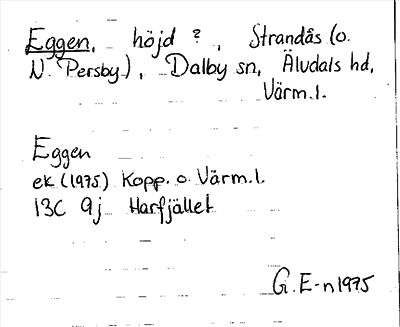 Eggen, höjd ?, Strandås (o.
N. Persby), Dalby sn, Älvdals hd,
Värm.l.
Eggen
ek (1975) Kopp. o. Värm.l.
13C 9j Harfjället
G. E-n 1975